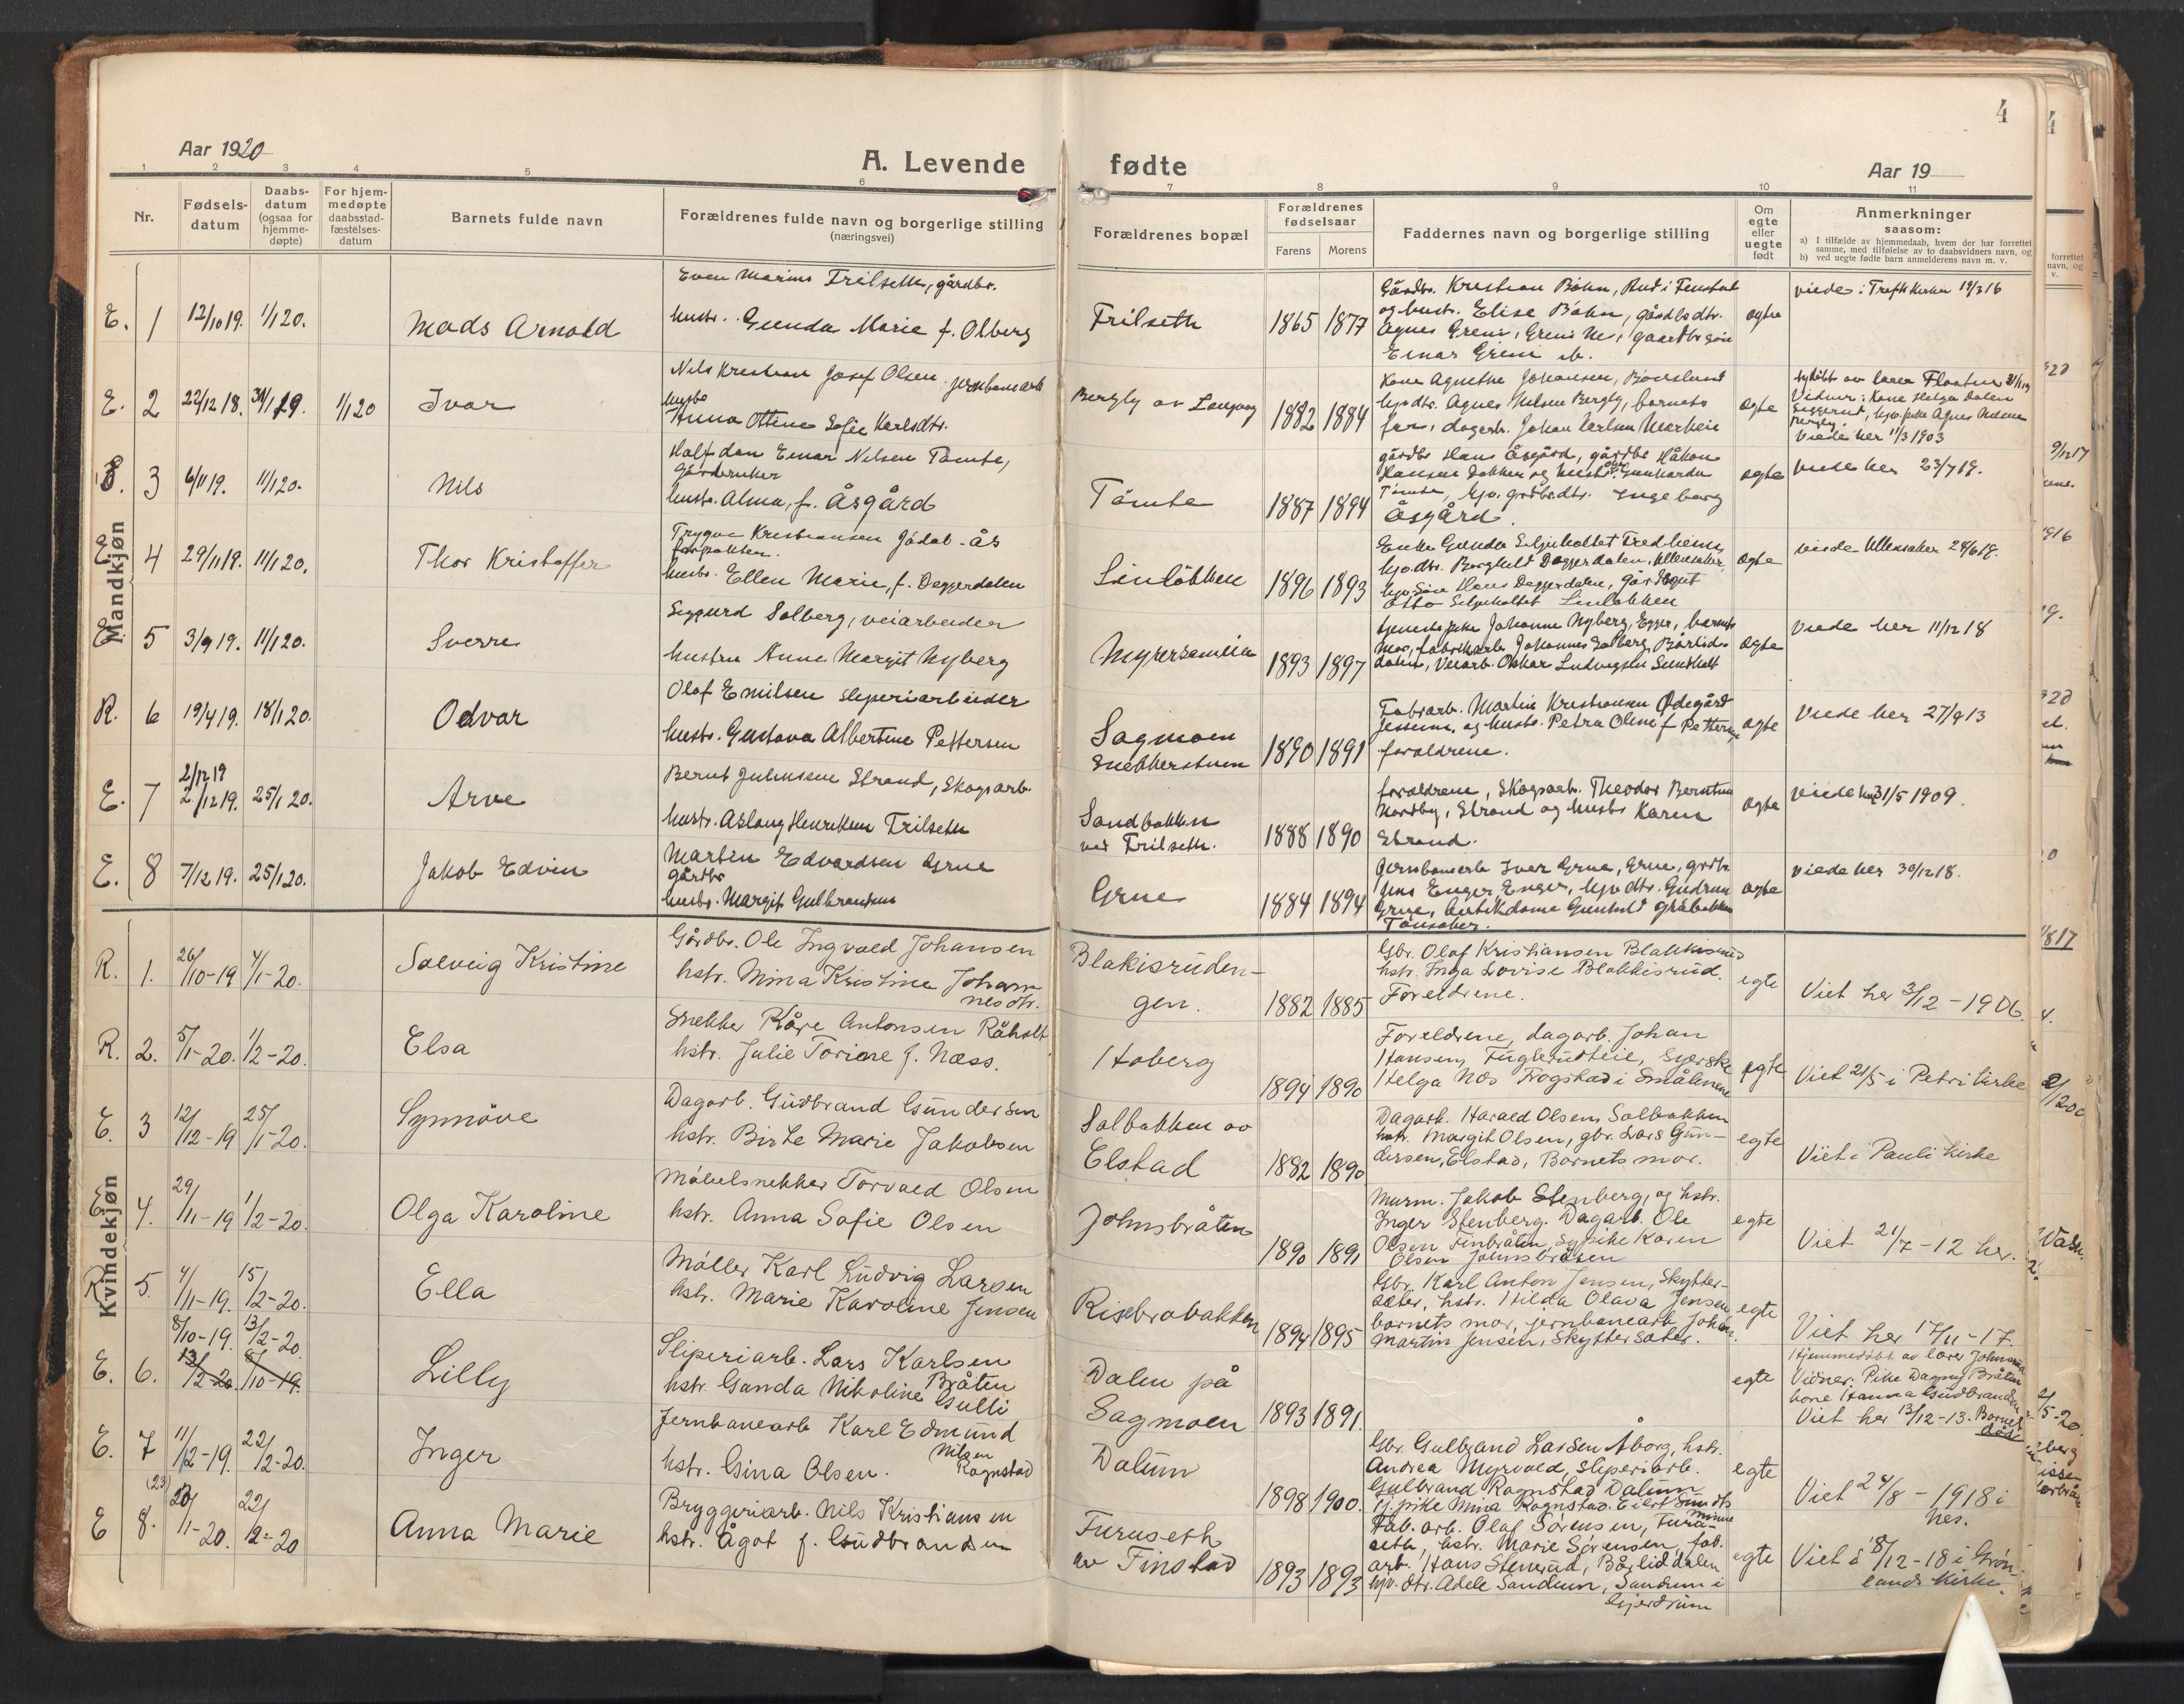 4
Aar 1920
A. Levende fødte
Aar 19
1 2 3 4 5 6 7 8 9 10 11
Nr.
Fødsels-
datum
Daabs-
datum
(ogsaa for
hjemme-
døpte)
For hjem-
medøpte
daabsstad-
fæstelses-
datum
Barnets fulde navn
Forældrenes fulde navn og borgerlige stilling
(næringsvei)
Forældrenes bopæl
Forældrenes
fødselsaar
Farens Morens
Faddernes navn og borgerlige stilling
Om
egte
eller
uegte
født
Anmerkninger
saasom:
a) I tilfælde av hjemmedaab, hvem der har forrettet
samme, med tilføielse av to daabsvidners navn, og
b) ved uegte fødte barn anmelderens navn m. v.
Mandkjøn
E. 1 12/10 19. 1/1 20. Mads Arnold
Even Marius Frilseth, gårdbr.
hustr. Gunda Marie f. Olberg
Frilseth 1865 1877
Gårdbr. Kristian Bøhn, Rud i Fenstad
og hustr. Elise Bøhn, gårdbdtr.
Agnes Greni, Greni Nes, gaardbrsøn
Einar Greni ib.
egte
viede i Trefk kirken 19/3 16
E. 2 22/12 18. 31/1 19. 1/1 20 Ivar
Nils Kristian Josef Olsen jernbanearb
hustr
Anna Ottine Sofie Karlsdtr.
Bergly av Langvag 1882 1884
Kone Agnethe Johansen, Bjørslund
hjvdtr. Agnes Nilsen Bergly, barnets
far, dagarb. Johan Karlsen Markeie
egte
hjdøbt av lærer Flaaten 31/1 19
Vidner: Kone Helga Dalen
Seggerud, hjv. pike Agnes Andrea
Bergly.
Viede her 11/3 1903
E. 3 6/11 19. 11/1 20. Nils
Halfdan Einar Nilsen Tømte,
Gårdbruker
hustr. Alma, f. Åsgård
Tømte 1887 1894
gårdbr Hans Åsgård, gårdbr Håkon
Hansen Dokken og hustr. Gunharda
Tømte, hjv. grdbrdtr. Ingeborg
Åsgård.
egte
viede her 23/7 19.
E. 4 29/11 19. 11/1 20. Thor Kristoffer
Trygve Kristiansen Jødal - Ås
forpakter.
hustr. Ellen Marie, f. Deggerdalen
Linløkken 1896 1893
Enke Gunda Siljeholtet Fredheim,
hjv. dtr. Borghild Deggerdalen, Ullensaker,
hjv. Søn Hans Deggerdalen, gårdbgut
Otto Siljeholtet Linløkken
egte
viede Ullensaker 28/6 19.
E. 5 3/9 19. 11/1 20. Sverre
Siggurd Solberg, veiarbeider
hustru Anne Margit Nyberg
Myrersemieie 1893 1897
tjenestepike Johanne Nyberg, Egger, barnets
mor, fabrikarb. Johannes Solberg, Bårlid-
dalen, Veiarb. Oskar Ludvigsen Sundholt
egte
Viede her 11/12 18
R. 6 19/4 19. 18/1 20. Odvar
Olaf Emilsen sliperiarbeider
hustr. Gustava Albertine Pettersen
Sagmoen
Snekkerstuen 1890 1891
Fabrarb. Martin Kristiansen Ødegård
Jessum, og hustr. Petra Olsen f Pettersen
forældrene.
egte
Viede her 27/9 13
2/12 19
E. 7 2/12 19. 25/1 20. Arve
Bernt Juliussen Strand, Skogsarb.
hustr. Aslaug Henriksen Frilseth
Sandbakken
ved Frilseth. 1888 1890
forældrene, Skogsarb. Theodor Berntsen
Nordby, Strand og hustr Karen
Strand.
egte
viede her 31/5 1909.
E. 8 7/12 19. 25/1 20. Jakob Edvin
Martin Edvardsen Grue
gårdbr
hustr. Margit Gulbrandsen
Grue 1884 1894
Jernbanearb Iver Grue, Grue, grdbr
Uns Enger, Enger, hjv dtr. Gudrun
Grue, butikdame Gunhild Gråbakken
Tønsaker.
egte
viede her 30/12 18.
Kvindekjøn
R. 1. 26/10-19 4/1-20. Solveig Kristine
Gårdbr. Ole Ingvald Johansen
hstr. Mina Kristine Johan-
nesdtr.
Blakisruden-
gen. 1882 1885
Gbr. Olaf Kristiansen Blakkisrud
hstr. Inga Lovise Blakkisrud.
Foreldrene.
egte
Viet her 3/12 - 1906.
R. 2. 5/1-20. 1/2-20. Elsa
Snekker Kåre Antonsen Råholt
hstr. Julie Torine f. Næss.
Hoberg 1894 1890
Foreldrene, dagarb. Johan
Hansen, Fuglerudteie, Syerske
Helga Næs Trøgstad i Smålenene
egte
Viet 21/5 i Petri kirke
E. 3 12/12-19 25/1-20. Synnöve
Dagarb. Gudbrand Gundersen
hstr. Birte Marie Jakobsen
Solbakken av
Elstad 1882 1890
Dagarb. Harald Olsen, Solbakken
hstr. Margit Olsen, gbr. Lars Gun-
dersen, Elstad, Barnets mor.
egte
Viet i Pauli kirke
E. 4. 29/11-19 1/2-20. Olga Karoline
Møbelsnekker Torvald Olsen
hstr. Anna Sofie Olsen
Johnsbråten 1890 1891
Murm. Jakob Stenberg, og hstr.
Inger Stenberg. Dagarb. Ole
Olsen Finbråten, sypike Karen
Olsen Johnsbråten
egte
Viet 21/7 - 12 her.
R. 5. 4/11-19. 15/2-20. Ella
Møller Karl Ludvig Larsen
hstr. Marie Karoline Jensen
Risebrobakken 1894 1895
Gbr. Karl Anton Jensen, Skytter-
sæter, hstr. Hilda Olava Jensen,
barnets mor, jernbanearb. Johan
Martin Jensen, Skyttersæter.
egte
Viet her 17/11-17.
8/10-19. 13/2-20.
E. 6. 13/2-20 8/10-19. Lilly
Sliperiarb. Lars Karlsen
Bråten
hstr. Gunda Nikoline Gulli
Dalen på
Sagmoen 1893 1891.
egte
Hjemmedøbt av lærer Johnsrud
Vidner: Pike Dagny Bråten
kone Hanna Gudbrandsen
Viet her 13/12-13. Barnet
død
E. 7 11/12-19. 22/2-20. Inger
Jernbanearb Karl Edmund
Nilsen
hstr. Gina Olsen. Rognstad
Dalum 1898 1900.
Gbr. Gulbrand Larsen Åborg, hstr.
Andrea Myrvold, sliperiarb.
Gulbrand Rognstad Dalum
tj. pike Mina Rognstad. Eilert Sundts
minne
egte
Viet 24/8 - 1918 i
Nes.
(23)
E 8. 23/1-20. 22/2-20 Anna Marie
Bryggeriarb. Nils Kristiansen
hstr. Ågot f. Gudbrandsen
Furuseth
av Finstad 1893 1893
Fab. arb. Olaf Sørensen, Furu-
seth, hstr. Marie Sørensen, fab.
arb. Hans Stenerud, Bårliddalen
hjv. dtr. Adele Sandum, Sandum i
Gjerdrum
egte
Viet d 8/12-18 i Grøn-
lands kirke.